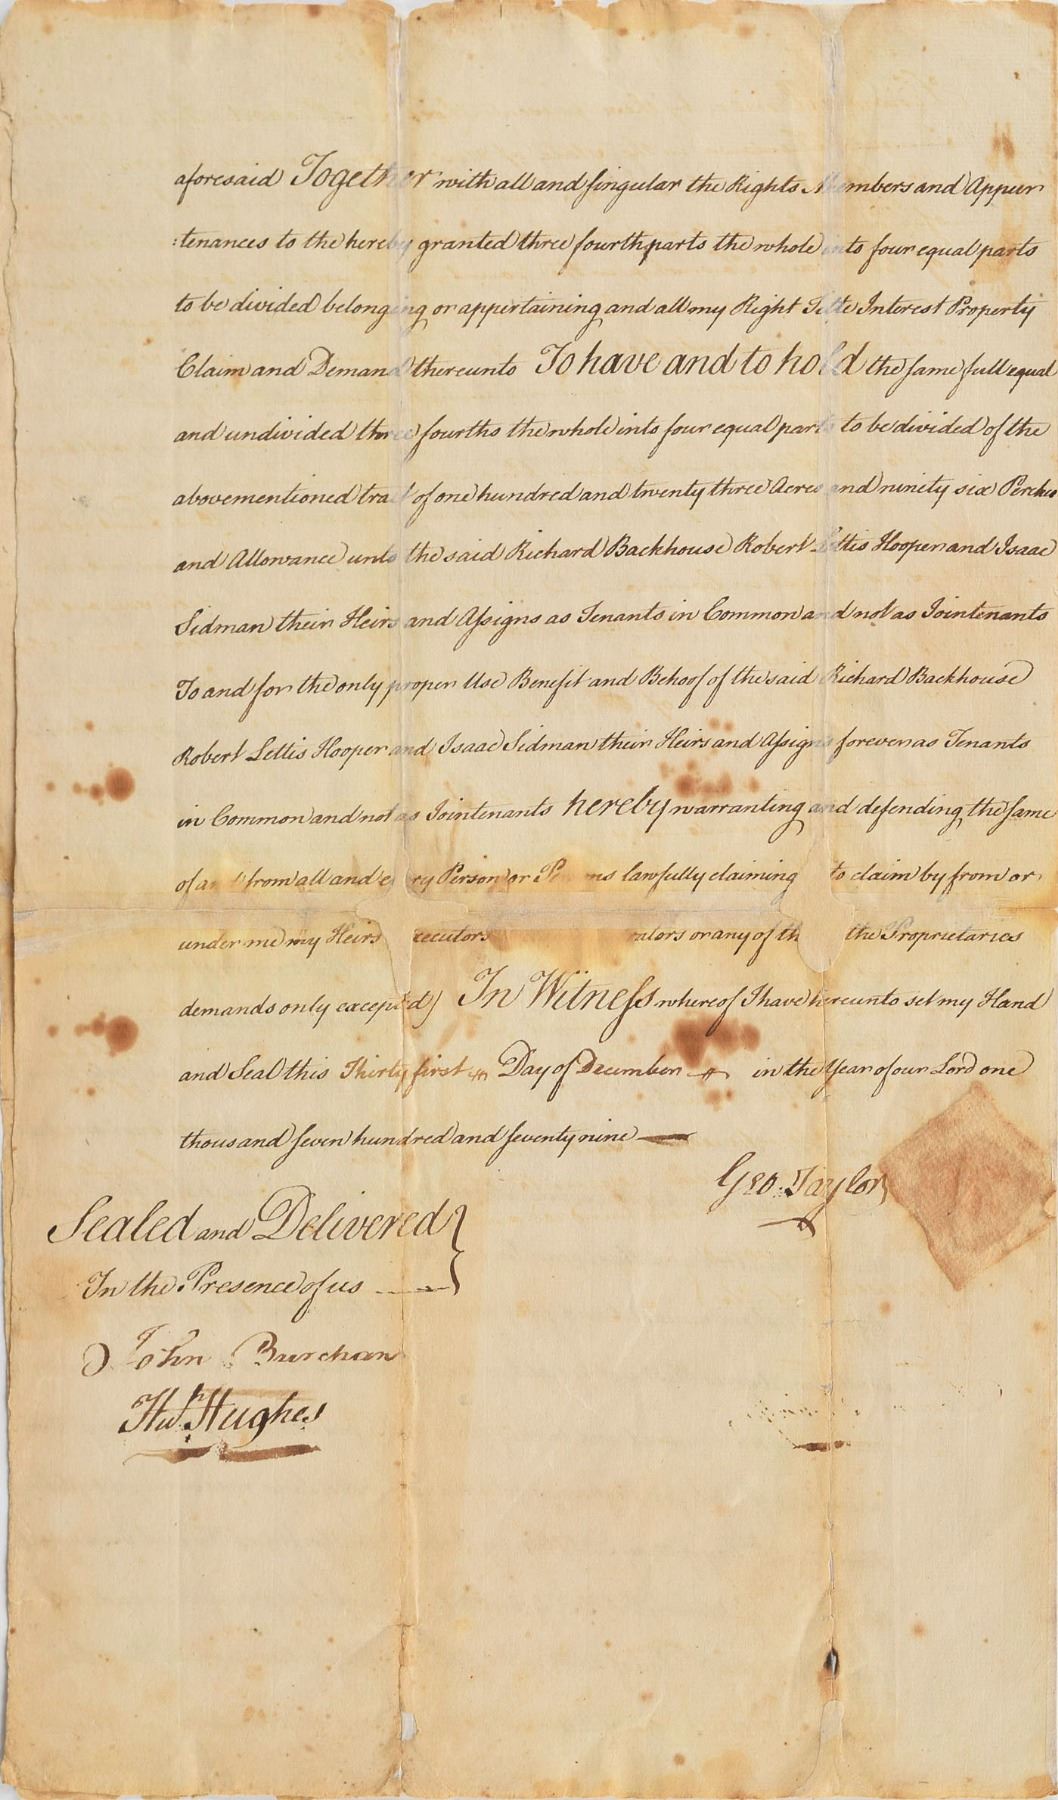 aforesaid Together with all and singular the Rights Members and Appur
:tenances to the hereby granted three fourth parts the whole into four equal parts
to be divided belonging or appertaining and all my Right Title Interest Property
Claim and Demand thereunto To have and to hold the same full equal
and undivided three fourths the whole into four equal parts to be divided of the
abovementioned tract of one hundred and twenty three Acres and ninety six Perches
and Allowance unto the said Richard Backhouse Robert Lettis Hooper and Isaac
Sidman their Heirs and Assigns as Tenants in Common and not as Jointenants
To and for the only proper Use Benefit and Behoof of the said Richard Backhouse
Robert Lettis Hooper and Isaac Sidman their Heirs and Assigns forever as Tenants
in Common and not as Jointenants hereby warranting and defending the same
of and from all and every Person or Persons lawfully claiming to claim by from or
under me my Heirs ecutors rators or any of th the Proprietaries
demands only excepted) In Witness whereof I have hereunto set my Hand
and Seal this Thirty first Day of December in the Year of our Lord one
thousand seven hundred and seventy nine
Geo. Taylor
Sealed and Delivered
In the Presence of us
John
Hughes